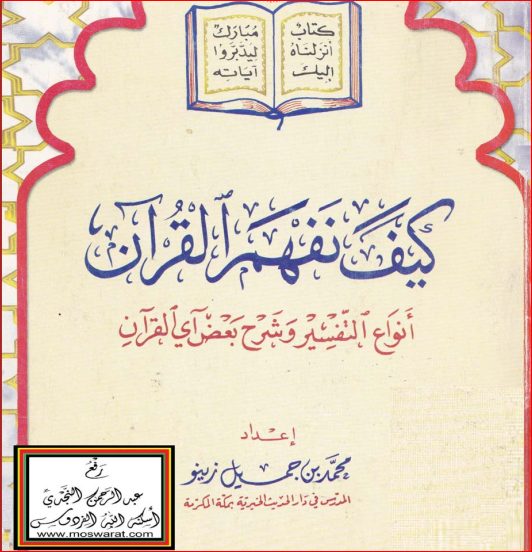 كتاب
أنزلناه
إليك
مبارك
ليدبروا
آياته
كيف نفهم القرآن
أنواع التفسير وشرح بعض آي القرآن
إعداد
محمد بن جميل زينو
المدرس في دار الحديث الخيرية بمكة المكرمة
رفع
عبد الرحمن النجدي
أسكنه الله الفردوس
www.moswarat.com